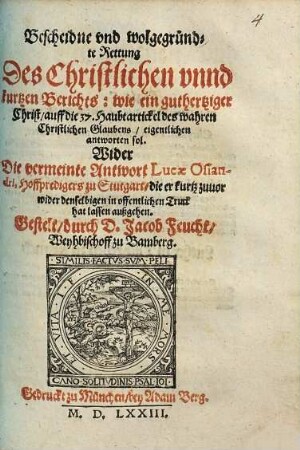 4
Bescheidne vnd wolgegründ-
te Rettung
Des Christlichen vnnd
kurtzen Berichts: wie ein guthertziger
Christ / auff die 37. Haubtartickel des wahren
Christlichen Glaubens / eigentlichen
antworten sol.
Wider
Die vermeinte Antwort Lucæ Osian-
dri, Hoffpredigers zu Stutgart / die er kurtz zuuor
wider denselbigen in offentlichen Truck
hat lassen außgehen.
Gestelt / durch D. Jacob Feucht /
Weyhbischoff zu Bamberg.
SIMILIS·FACTVS·SVM·PELI
CANO·SOLITVDINIS·PSAL·101
Gedruckt zu München / bey Adam Berg.
M. D. LXXIII.